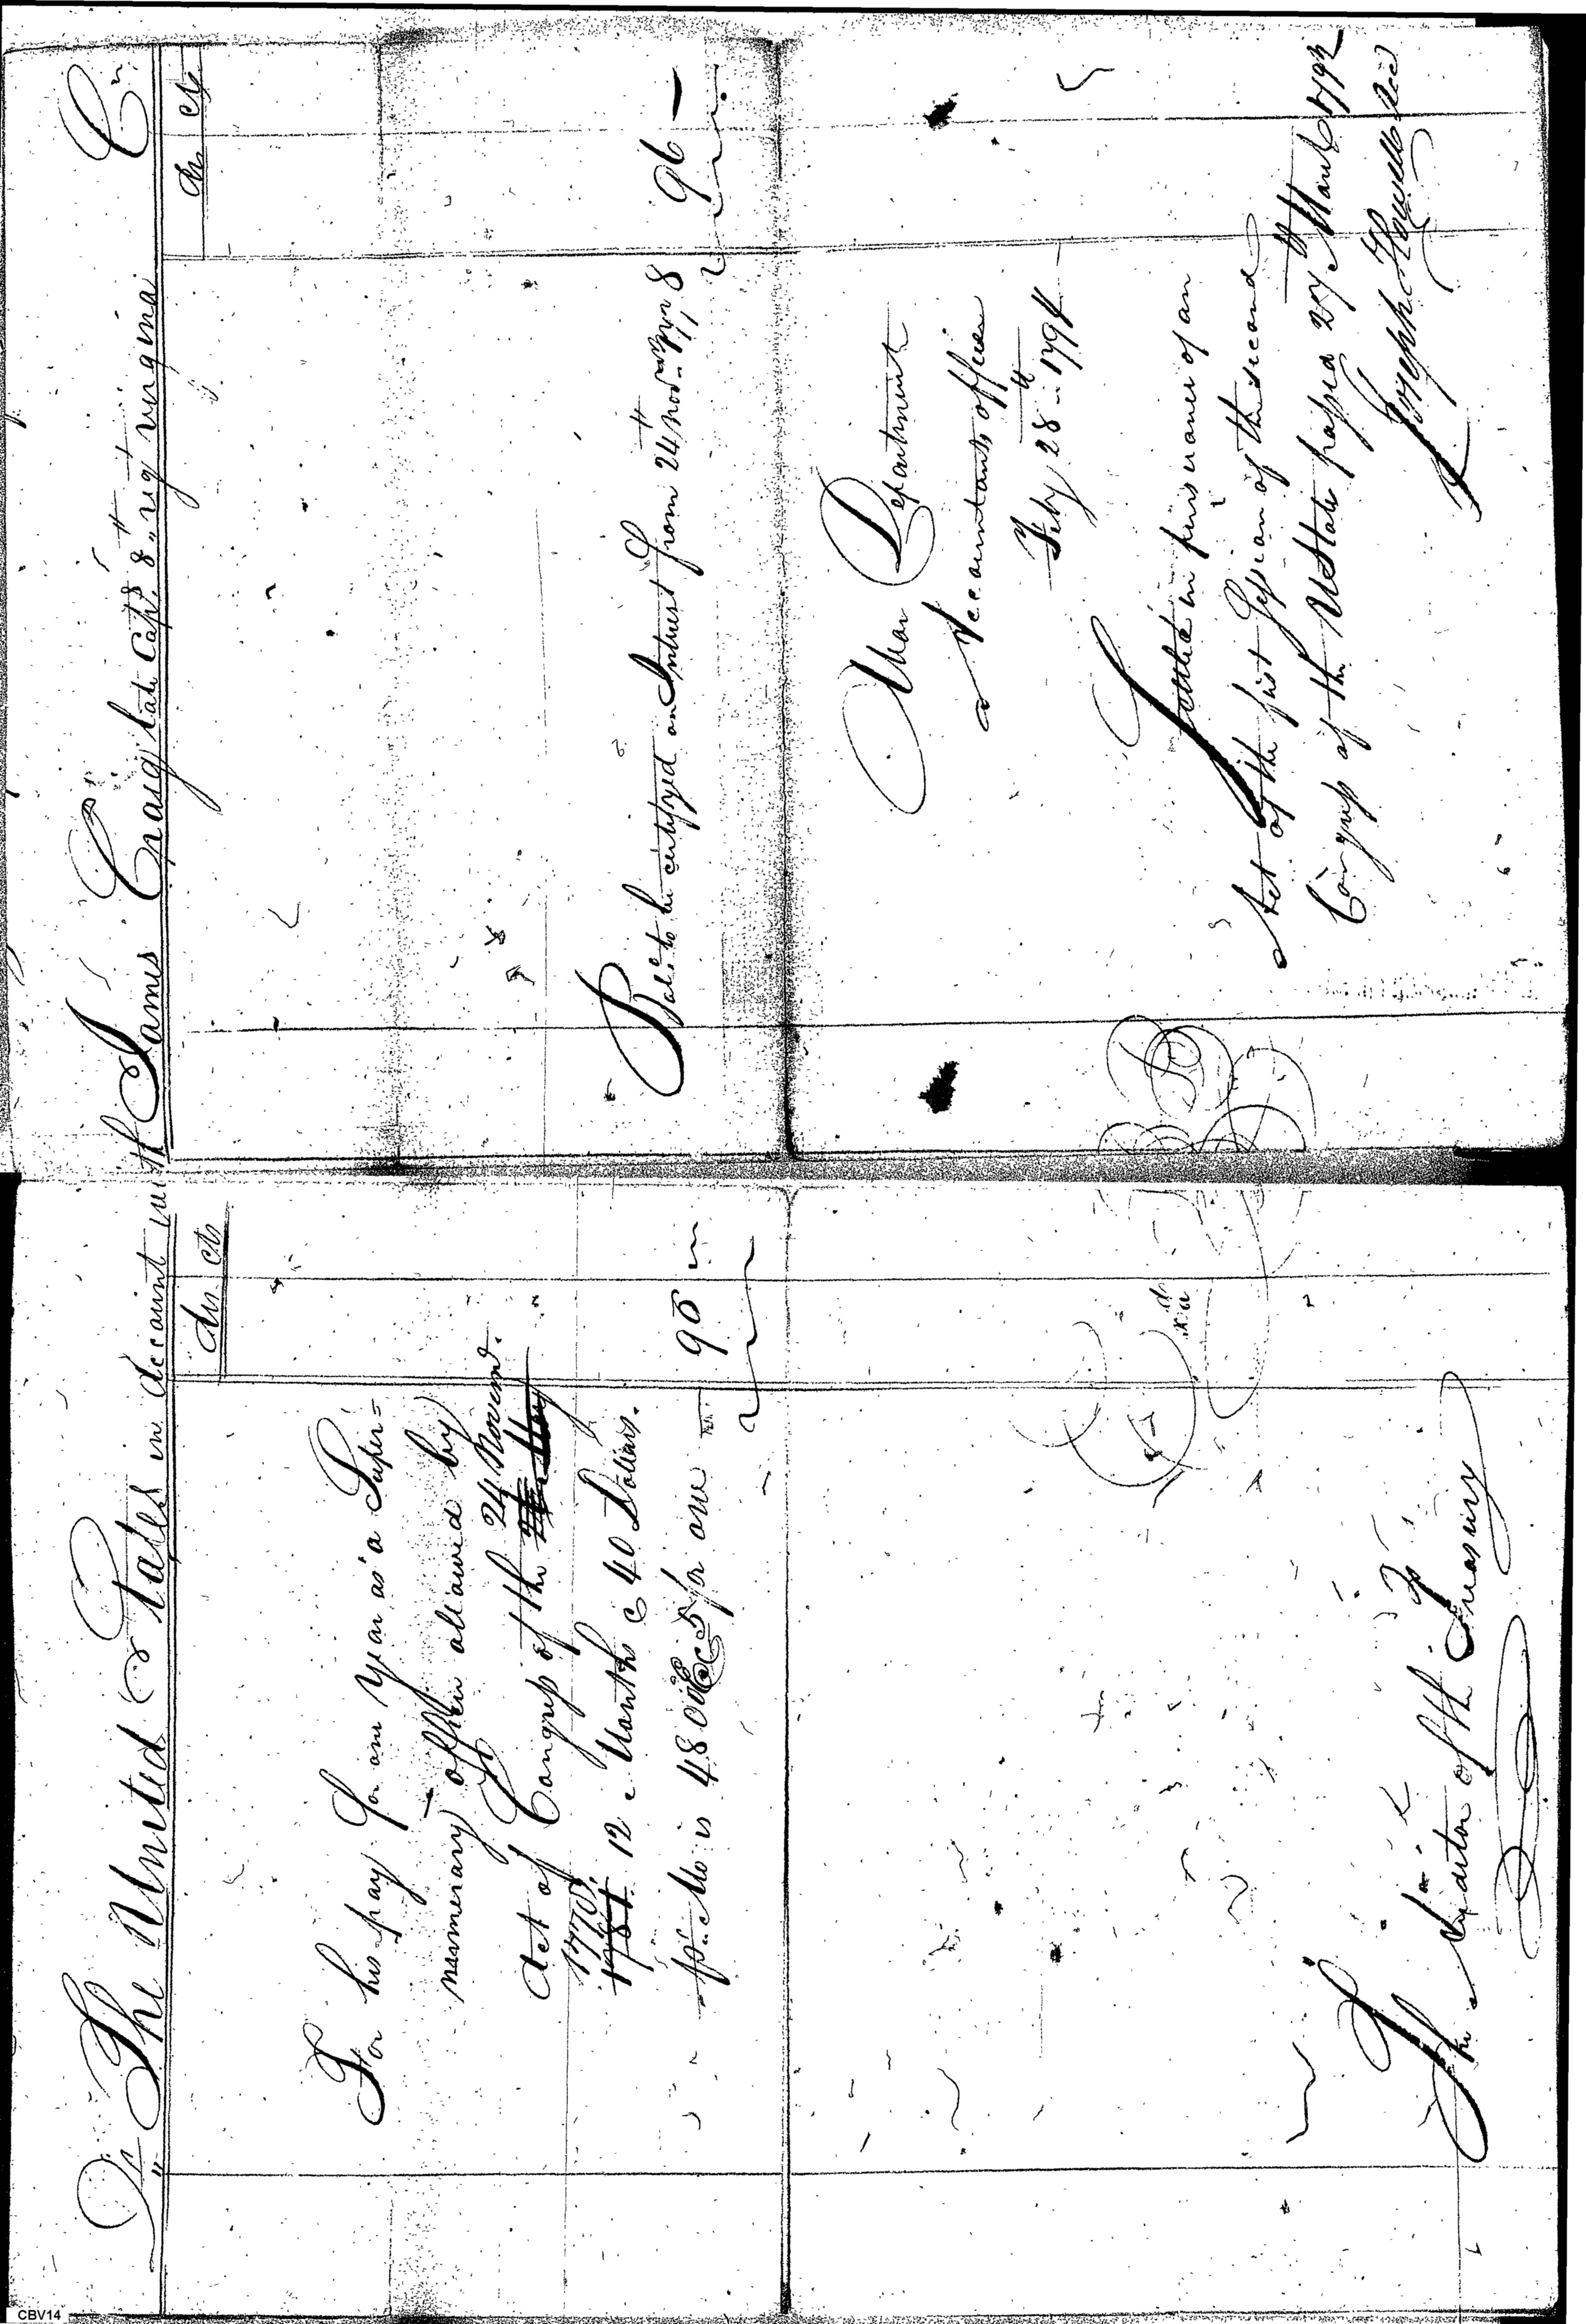 Dr The United States in account with James Craig late Capt. 8th reg virginia Cr
Drs Cts
For his pay for one year as a Super=
numerary officer allowed by
Act of Congress of the 24 Novemr.
1778. 12 Months @ 40 Dollars.
pr. Mo is 480 for one
96
The Auditor of the Treasury
Drs Cts
Balce. to be certifyed on Interest from 24th Novemr. 1778
96 —
War Department
Accountants office
Feby 28th 1794
Settled in pursuance of an
Act of the first Session of the second
Congress of the UStates passed 27th March 1792
Joseph Howell
CBV14